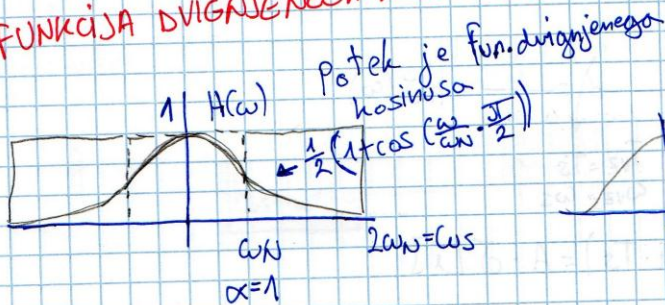 FUNKCIJA DVIGNJENEGA
Potek je fun. dvignjenega
kosinusa
1 H(ω)
½(1+cos(ω/ωN · π/2))
ωN 2ωN=ωs
α=1